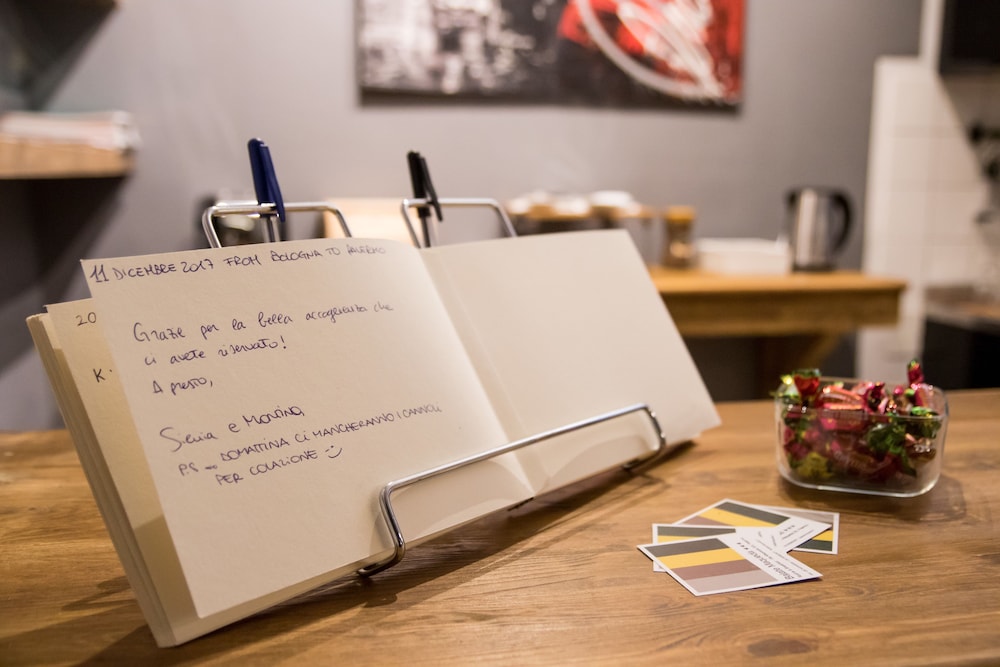 11 DICEMBRE 2017 FROM BOLOGNA TO PALERMO
Grazie per la bella accoglienza che
ci avete riservato!
A presto,
Silvia e Monina
PS - DOMATTINA CI MANCHERANNO I CANNOLI
PER COLAZIONE :-)
20
K.